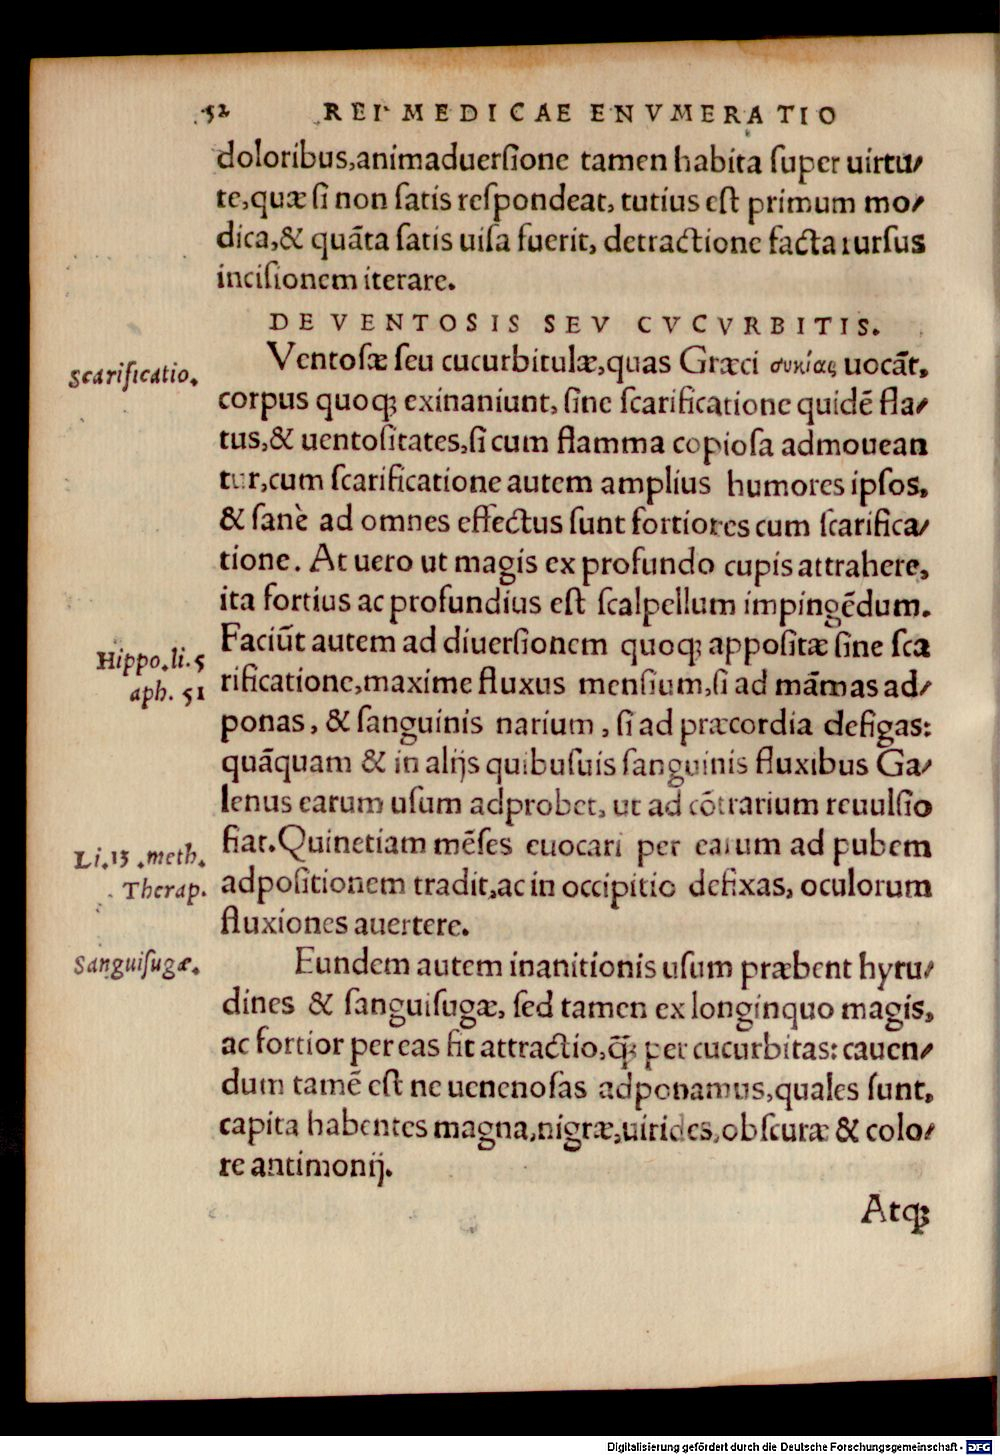 52 REI MEDICAE ENVMERATIO
doloribus,animaduersione tamen habita super uirtu/
te,quæ si non satis respondeat, tutius est primum mo/
dica,& quãta satis uisa fuerit, detractione facta rursus
incisionem iterare.
DE VENTOSIS SEV CVCVRBITIS.
scarificatio.
Ventosæ seu cucurbitulæ,quas Græci συκίας uocãt,
corpus quoq; exinaniunt, sine scarificatione quidẽ fla/
tus,& uentositates,si cum flamma copiosa admouean
tur,cum scarificatione autem amplius humores ipsos,
& sanè ad omnes effectus sunt fortiores cum scarifica/
tione. At uero ut magis ex profundo cupis attrahere,
ita fortius ac profundius est scalpellum impingẽdum.
Hippo.li.5
aph. 51
Faciũt autem ad diuersionem quoq; appositæ sine sca
rificatione,maxime fluxus mensium,si ad mãmas ad/
ponas, & sanguinis narium, si ad præcordia defigas:
quãquam & in alijs quibusuis sanguinis fluxibus Ga/
lenus earum usum adprobet, ut ad cõtrarium reuulsio
Li.13.meth.
Therap.
fiat.Quinetiam mẽses euocari per earum ad pubem
adpositionem tradit,ac in occipitio defixas, oculorum
fluxiones auertere.
Sanguisugæ.
Eundem autem inanitionis usum præbent hyru/
dines & sanguisugæ, sed tamen ex longinquo magis,
ac fortior per eas fit attractio,q̃; per cucurbitas: cauen/
dum tamẽ est ne uenenosas adponamus,quales sunt,
capita habentes magna,nigræ,uirides,obscuræ & colo/
re antimonij.
Atq;
Digitalisierung gefördert durch die Deutsche Forschungsgemeinschaft - DFG